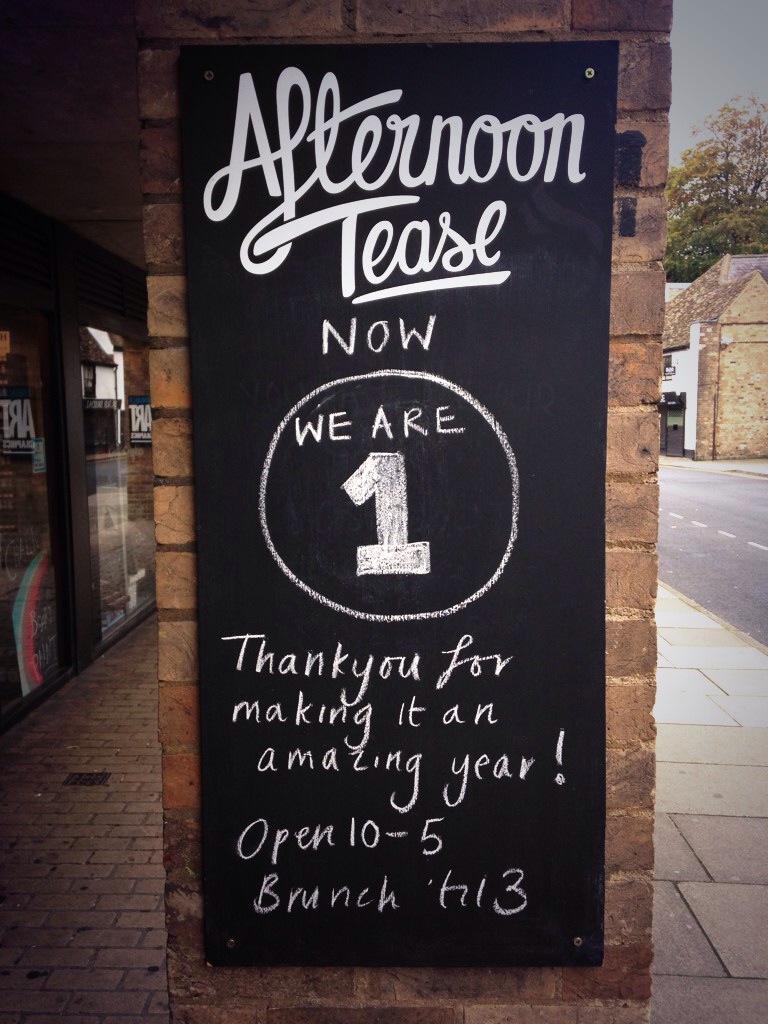 Afternoon
Tease
NOW
WE ARE
1
Thankyou for
making it an
amazing year!
Open 10-5
Brunch 'til 3
ART
ART